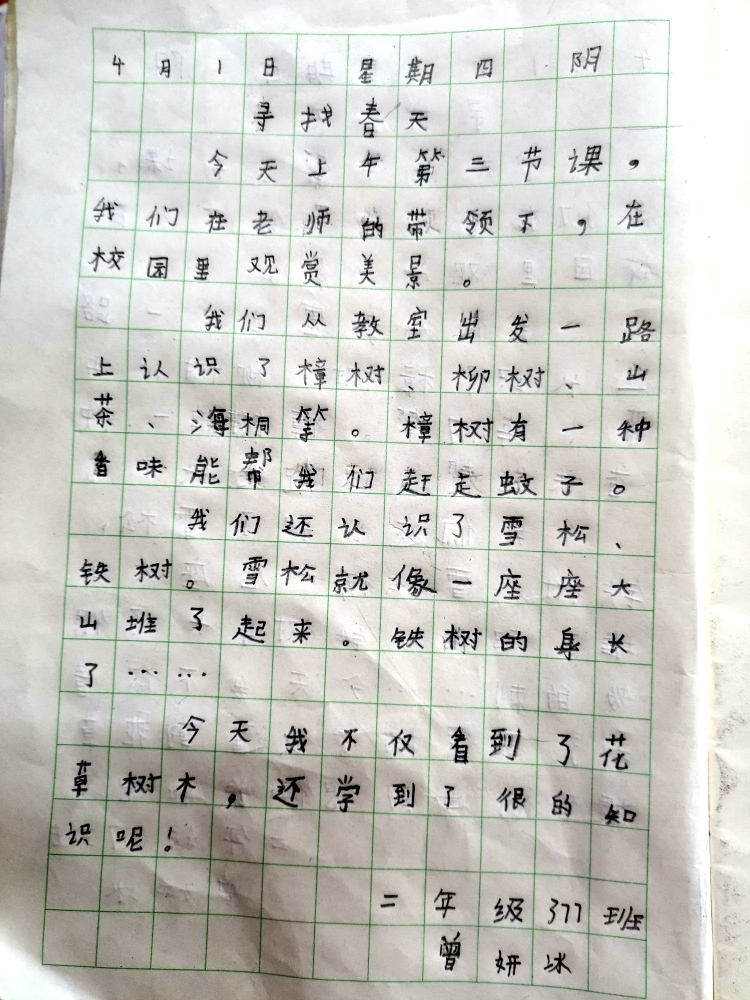 4月1日 星期四 阴
寻找春天
今天上午第三节课，
我们在老师的带领下，在
校园里观赏美景。
我们从教室出发一路
上认识了樟树、柳树、山
茶、海桐等。樟树有一种
香味能帮我们赶走蚊子。
我们还认识了雪松、
铁树。雪松就像一座座大
山堆了起来。铁树的身长
了……
今天我不仅看到了花
草树木，还学到了很的知
识呢！
二年级377班
曾妍冰